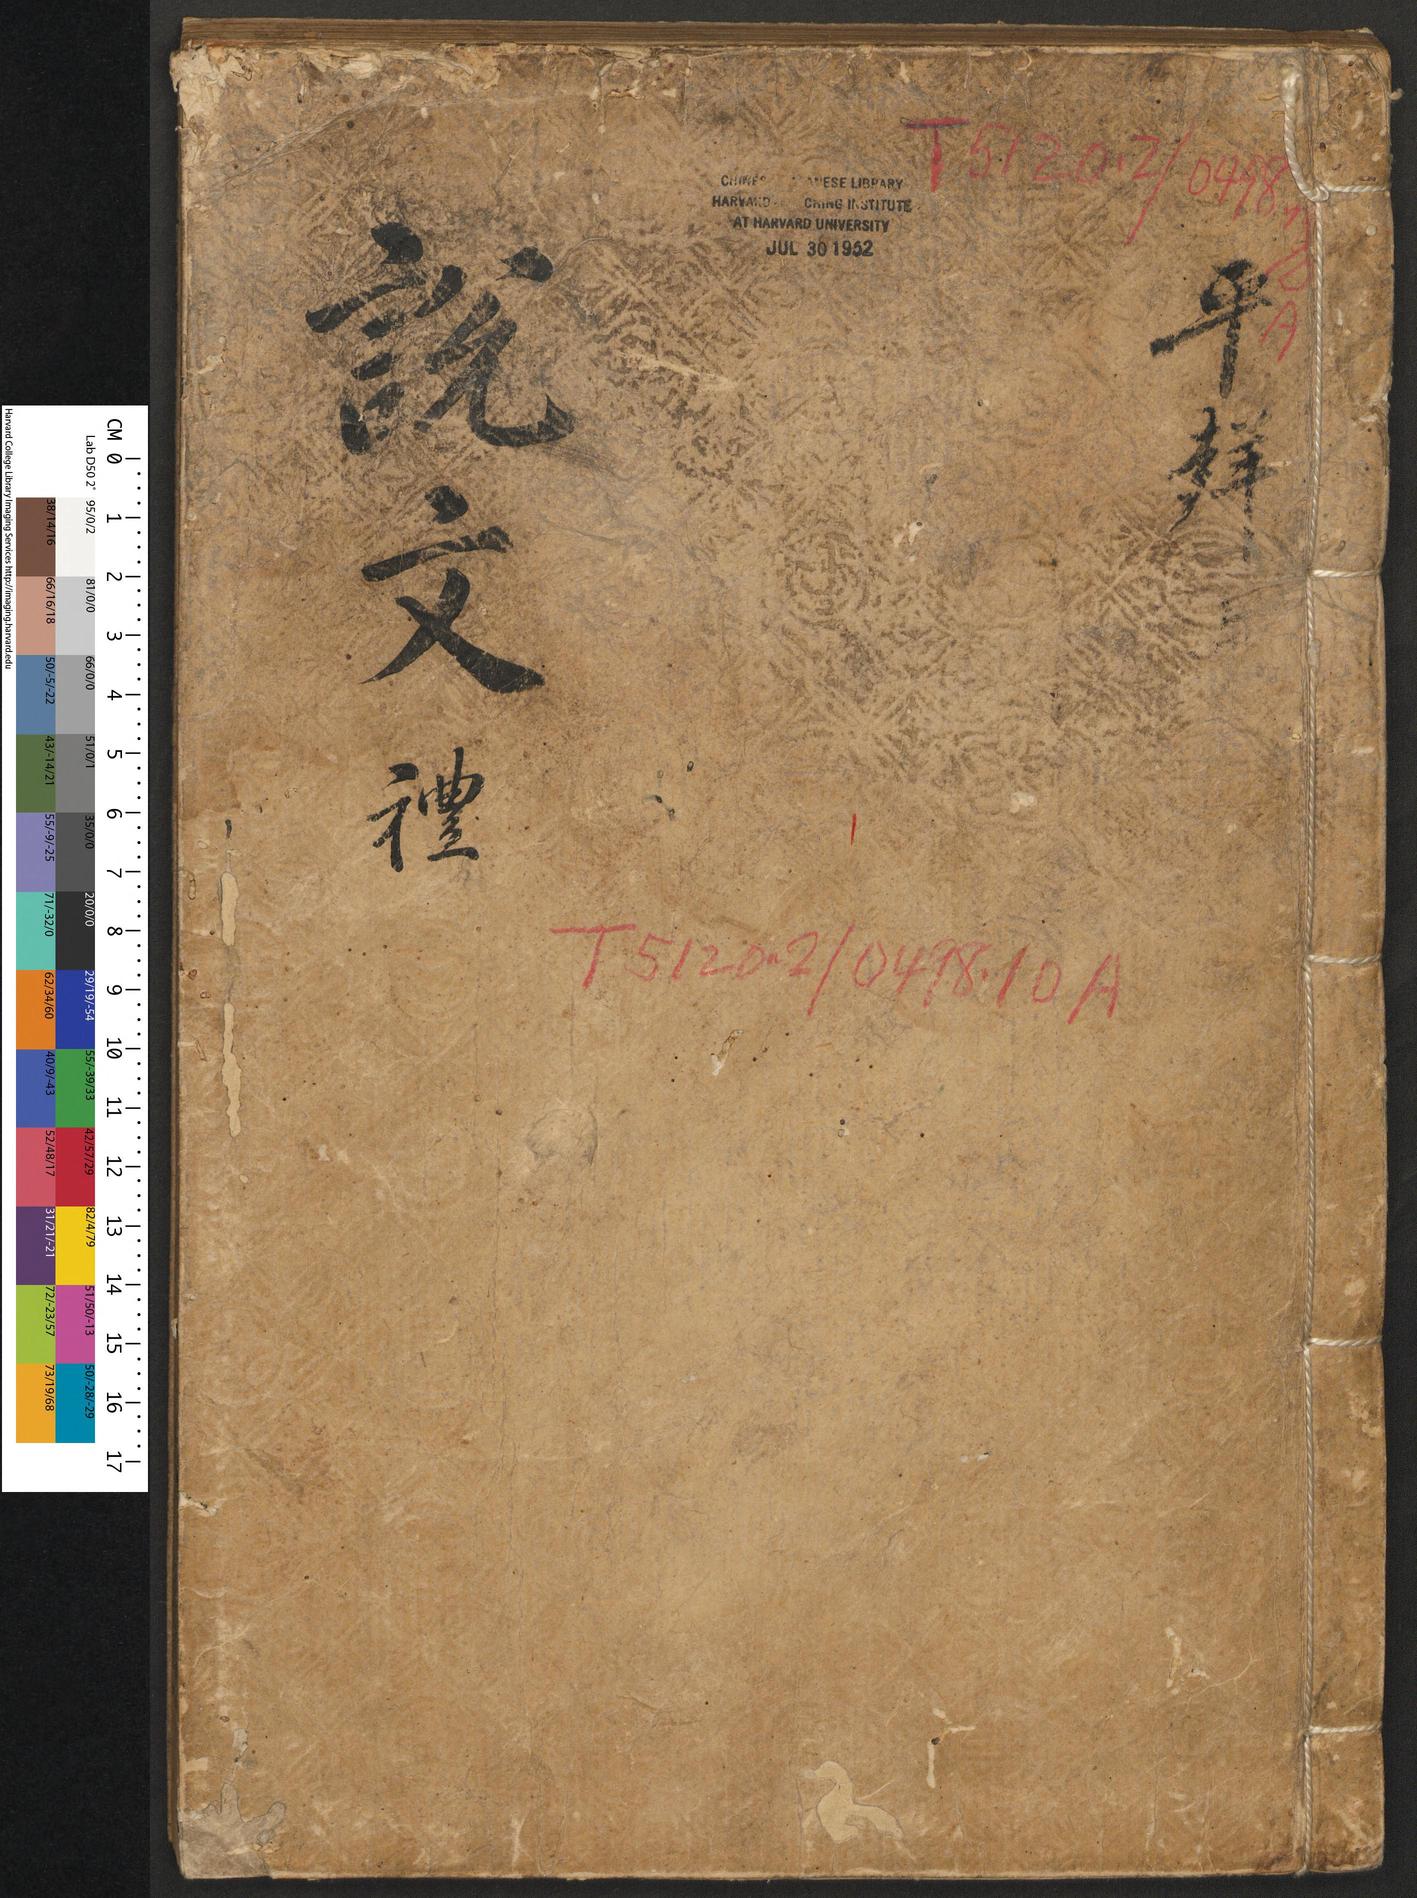 說文 禮
平聲
CHINESE LIBRARY
HARVARD CHING INSTITUTE
AT HARVARD UNIVERSITY
JUL 30 1952
T5120.2/0498.10
A
T5120.2/0498.10A
CM 0 1 2 3 4 5 6 7 8 9 10 11 12 13 14 15 16 17
Lab D50 2° 95/0/2 81/0/0 66/0/0 51/0/1 35/0/0 20/0/0 29/19/-54 55/-39/33 42/57/29 82/4/79 51/50/-13 50/-28/-29
38/14/16 66/16/18 50/-5/-22 43/-14/21 55/-9/-25 71/-32/0 62/34/60 40/9/-43 52/48/17 31/21/-21 72/-23/57 73/19/68
Harvard College Library Imaging Services http://imaging.harvard.edu